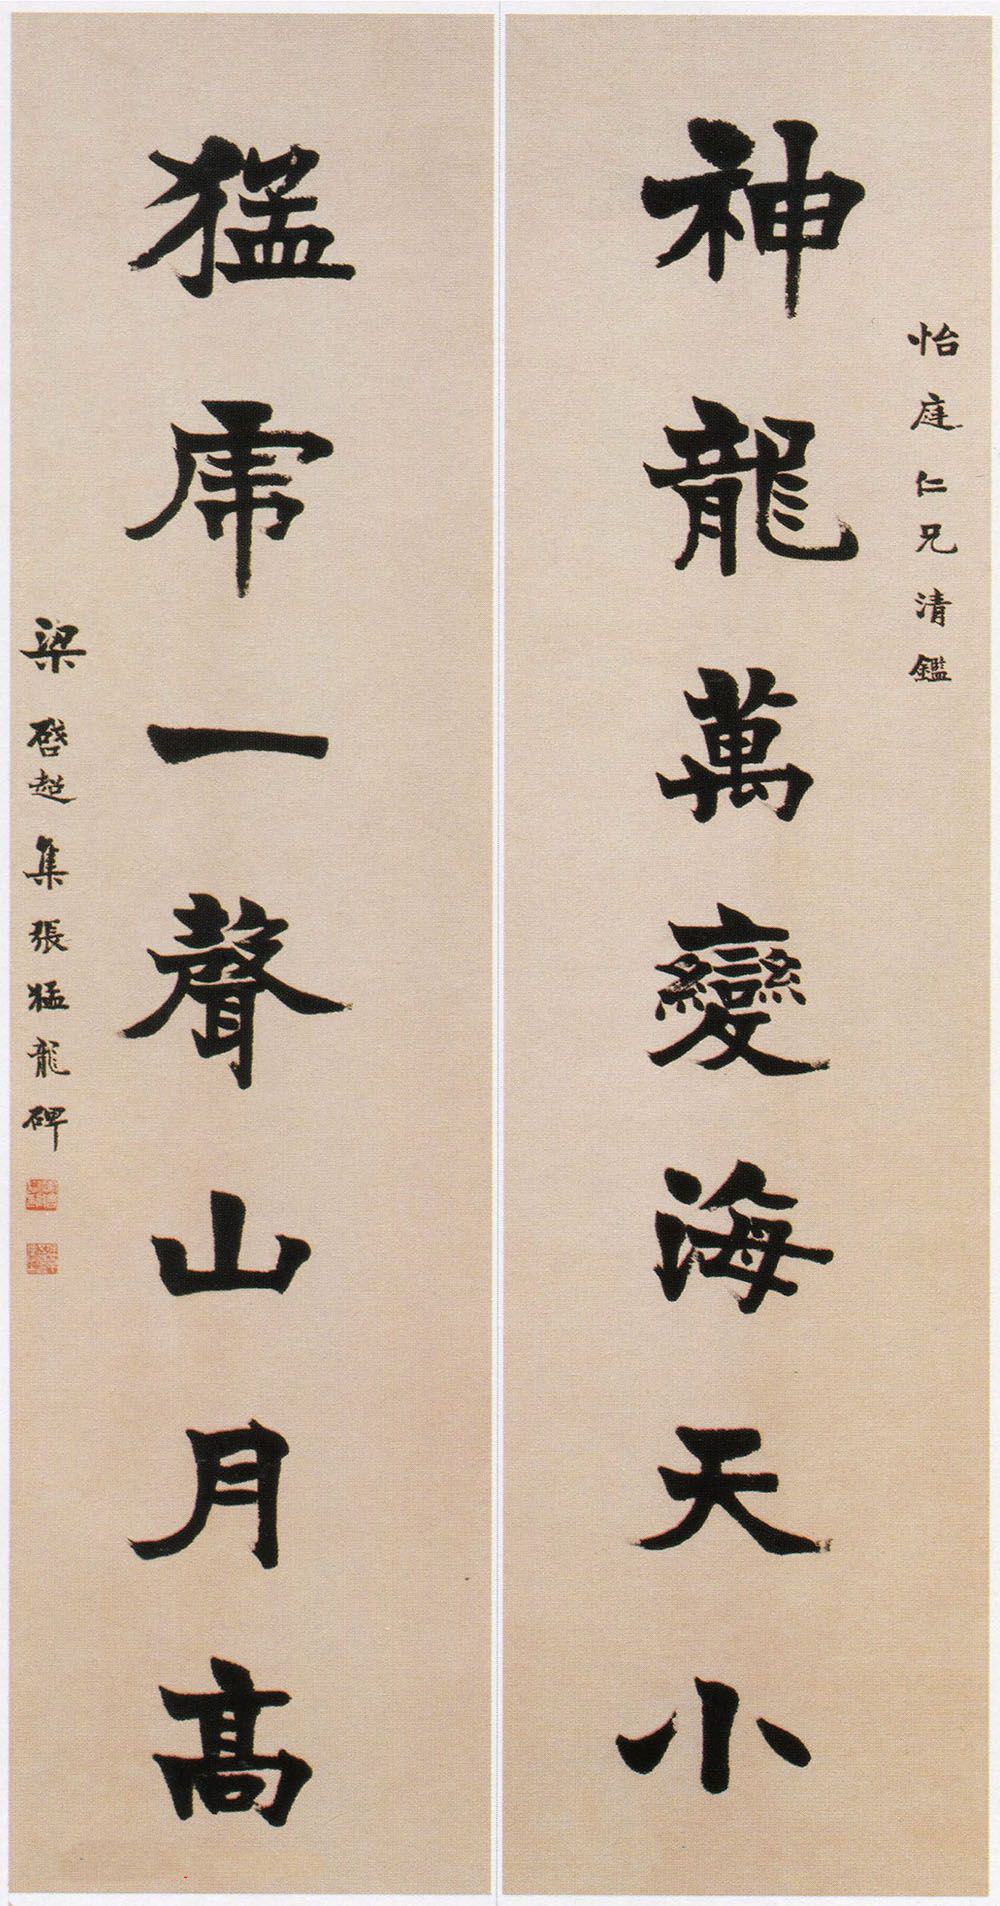 怡庭仁兄清鑑
神龍萬變海天小
猛虎一聲山月高
梁啓超集張猛龍碑